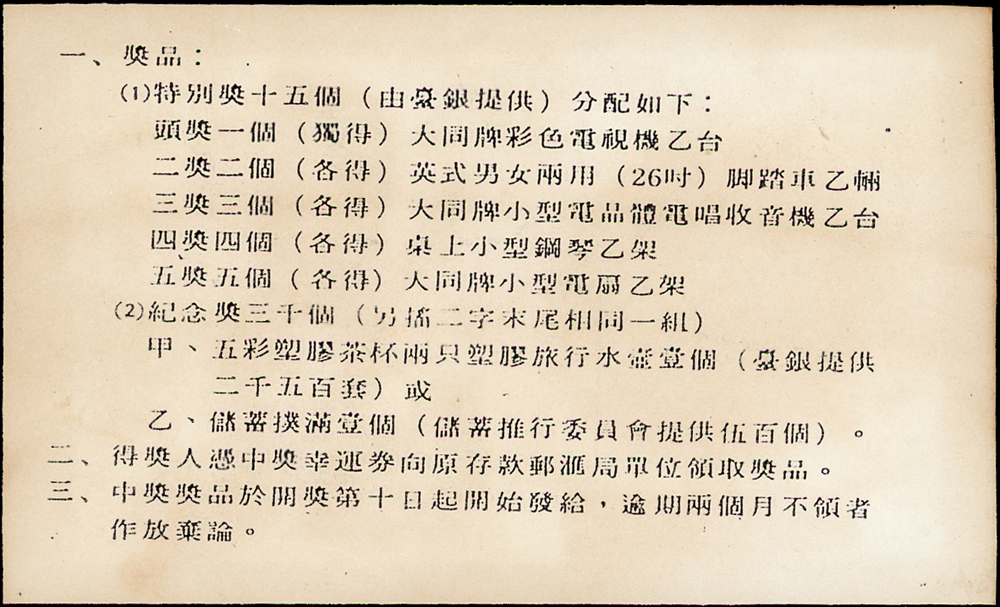 一、獎品：
(1)特別獎十五個（由臺銀提供）分配如下：
頭獎一個（獨得）大同牌彩色電視機乙台
二獎二個（各得）英式男女兩用（26吋）脚踏車乙輛
三獎三個（各得）大同牌小型電晶體電唱收音機乙台
四獎四個（各得）桌上小型鋼琴乙架
五獎五個（各得）大同牌小型電扇乙架
(2)紀念獎三千個（另搖二字末尾相同一組）
甲、五彩塑膠茶杯兩只塑膠旅行水壺壹個（臺銀提供
二千五百套）或
乙、儲蓄撲滿壹個（儲蓄推行委員會提供伍百個）。
二、得獎人憑中獎幸運券向原存款郵滙局單位領取獎品。
三、中獎獎品於開獎第十日起開始發給，逾期兩個月不領者
作放棄論。